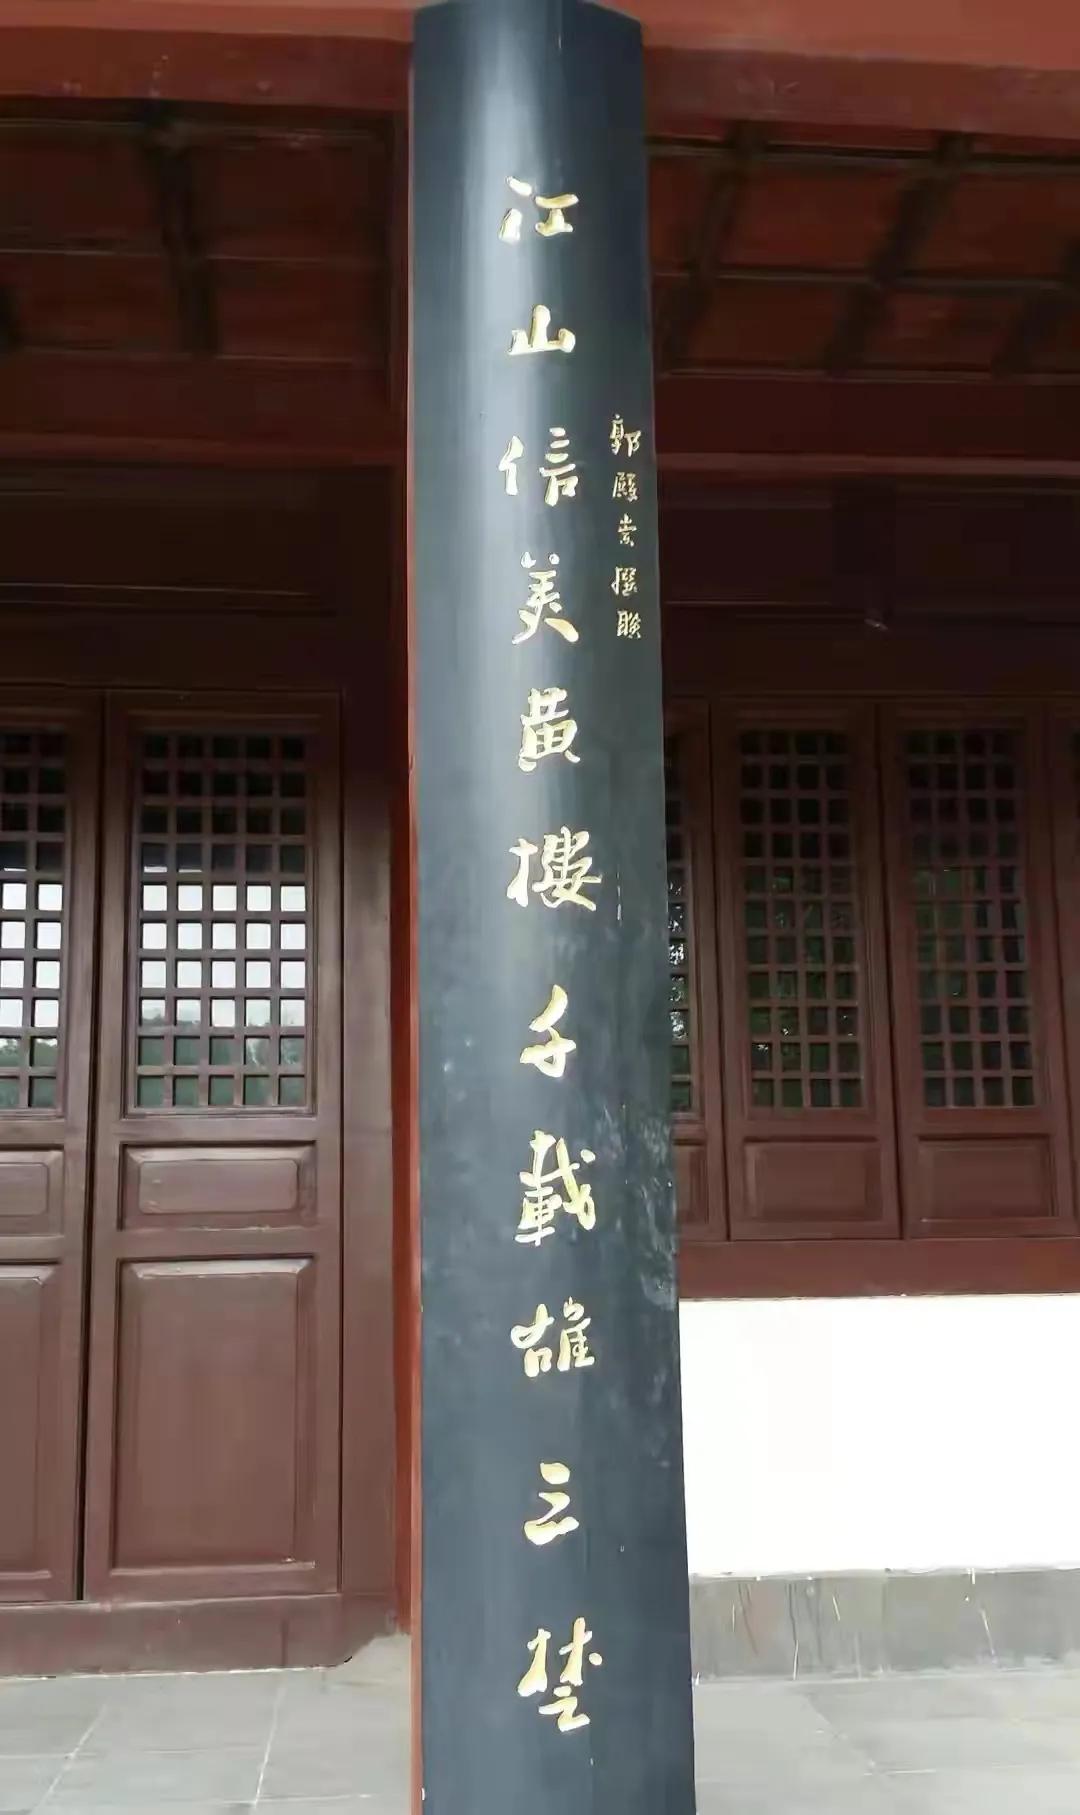 郭殿崇撰聯
江山信美黄樓千載雄三楚